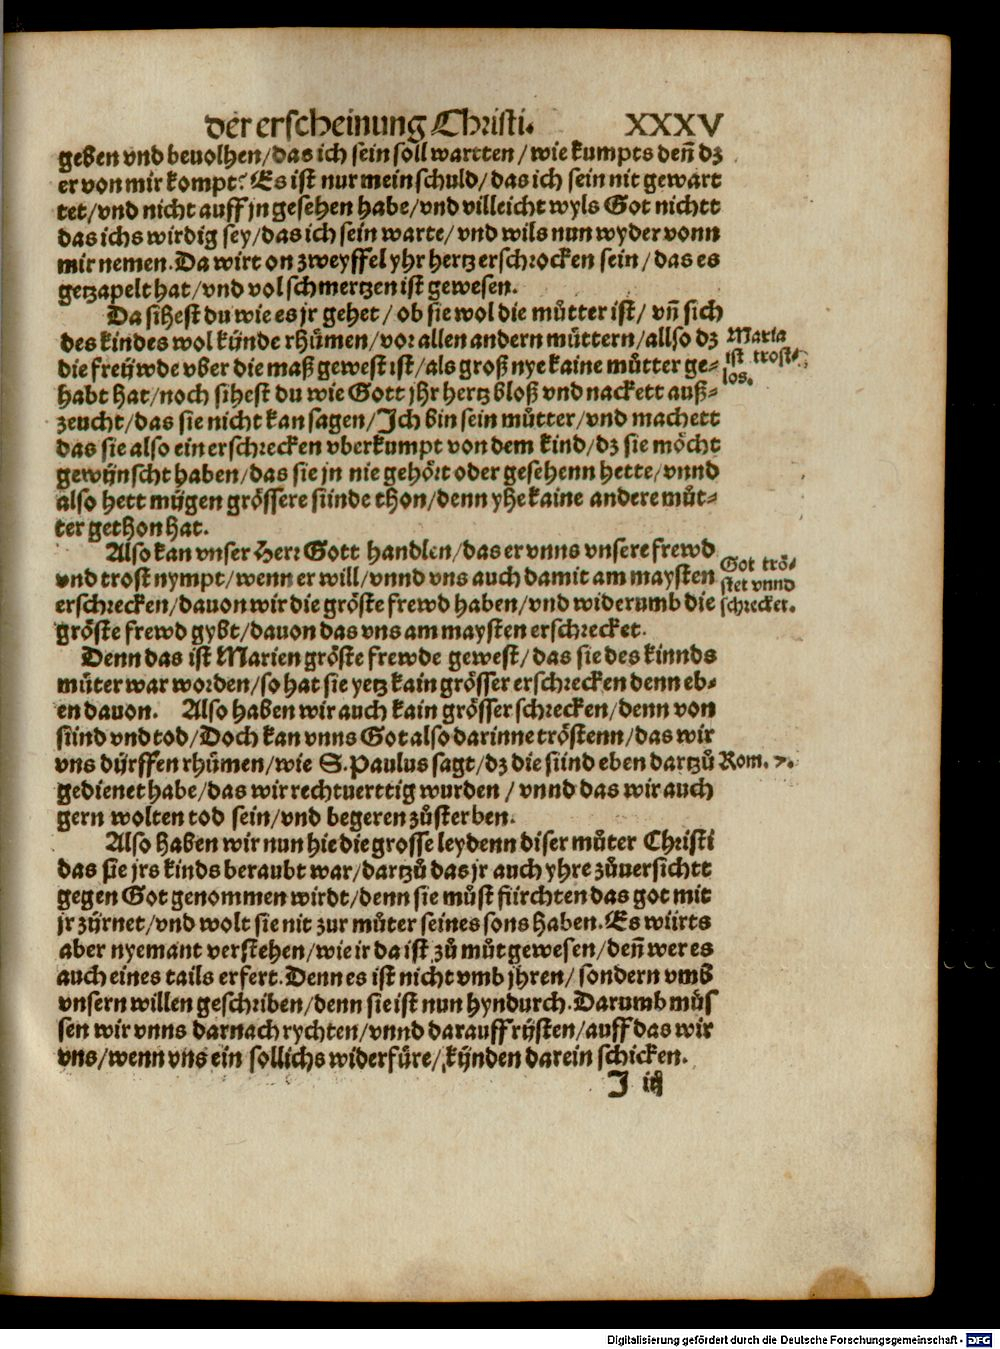 der erscheinung Christi. XXXV
geben vnd beuolhen/das ich sein soll wartten/wie kumpts deñ dz
er von mir kompt? Es ist nur mein schuld/das ich sein nit gewart
tet/vnd nicht auff jn gesehen habe/vnd villeicht wyls Got nichtt
das ichs wirdig sey/das ich sein warte/vnd wils nun wyder vonn
mir nemen. Da wirt on zweyffel yhr hertz erschrocken sein/das es
getzapelt hat/vnd vol schmertzen ist gewesen.
Da sihest du wie es jr gehet/ob sie wol die můtter ist/vñ sich
des kindes wol kÿnde rhümen/vor allen andern müttern/allso dz
die freÿwde vber die maß gewest ist/als groß nye kaine můtter ge-
habt hat/noch sihest du wie Gott jhr hertz bloß vnd nackett auß-
zeucht/das sie nicht kan sagen/Ich bin sein můtter/vnd machett
das sie also ein erschrecken vberkumpt von dem kind/dz sie möcht
gewÿnscht haben/das sie jn nie gehört oder gesehenn hette/vnnd
also hett mÿgen grössere sünde thon/denn yhe kaine andere můt-
ter gethon hat.
Maria
ist trost-
los.
Also kan vnser Herr Gott handlen/das er vnns vnsere frewd
vnd trost nympt/wenn er will/vnnd vns auch damit am maysten
erschrecken/dauon wir die gröste frewd haben/vnd widerumb die
gröste frewd gybt/dauon das vns am maysten erschrecket.
Got trö-
stet vnnd
schrecket.
Denn das ist Marien gröste frewde gewest/das sie des kinnds
můter war worden/so hat sie yetz kain grösser erschrecken denn eb-
en dauon. Also haben wir auch kain grösser schrecken/denn von
sünd vnd tod/Doch kan vnns Got also darinne tröstenn/das wir
vns dÿrffen rhümen/wie S. Paulus sagt/dz die sünd eben dartzů
gedienet habe/das wir rechtuerttig wurden/vnnd das wir auch
gern wolten tod sein/vnd begeren zů sterben.
Rom. 7.
Also haben wir nun hie die grosse leydenn diser můter Christi
das sie jrs kinds beraubt war/dartzů das jr auch yhre zůuersichtt
gegen Got genommen wirdt/denn sie můst fürchten das got mit
jr zÿrnet/vnd wolt sie nit zur můter seines sons haben. Es würts
aber nyemant verstehen/wie ir da ist zů můt gewesen/deñ wer es
auch eines tails erfert. Denn es ist nicht vmb jhren/sondern vmb
vnsern willen geschriben/denn sie ist nun hyndurch. Darumb müs
sen wir vnns darnach rychten/vnnd darauff rÿsten/auff das wir
vns/wenn vns ein sollichs widerfüre/kÿnden darein schicken.
I iij
Digitalisierung gefördert durch die Deutsche Forschungsgemeinschaft - DFG